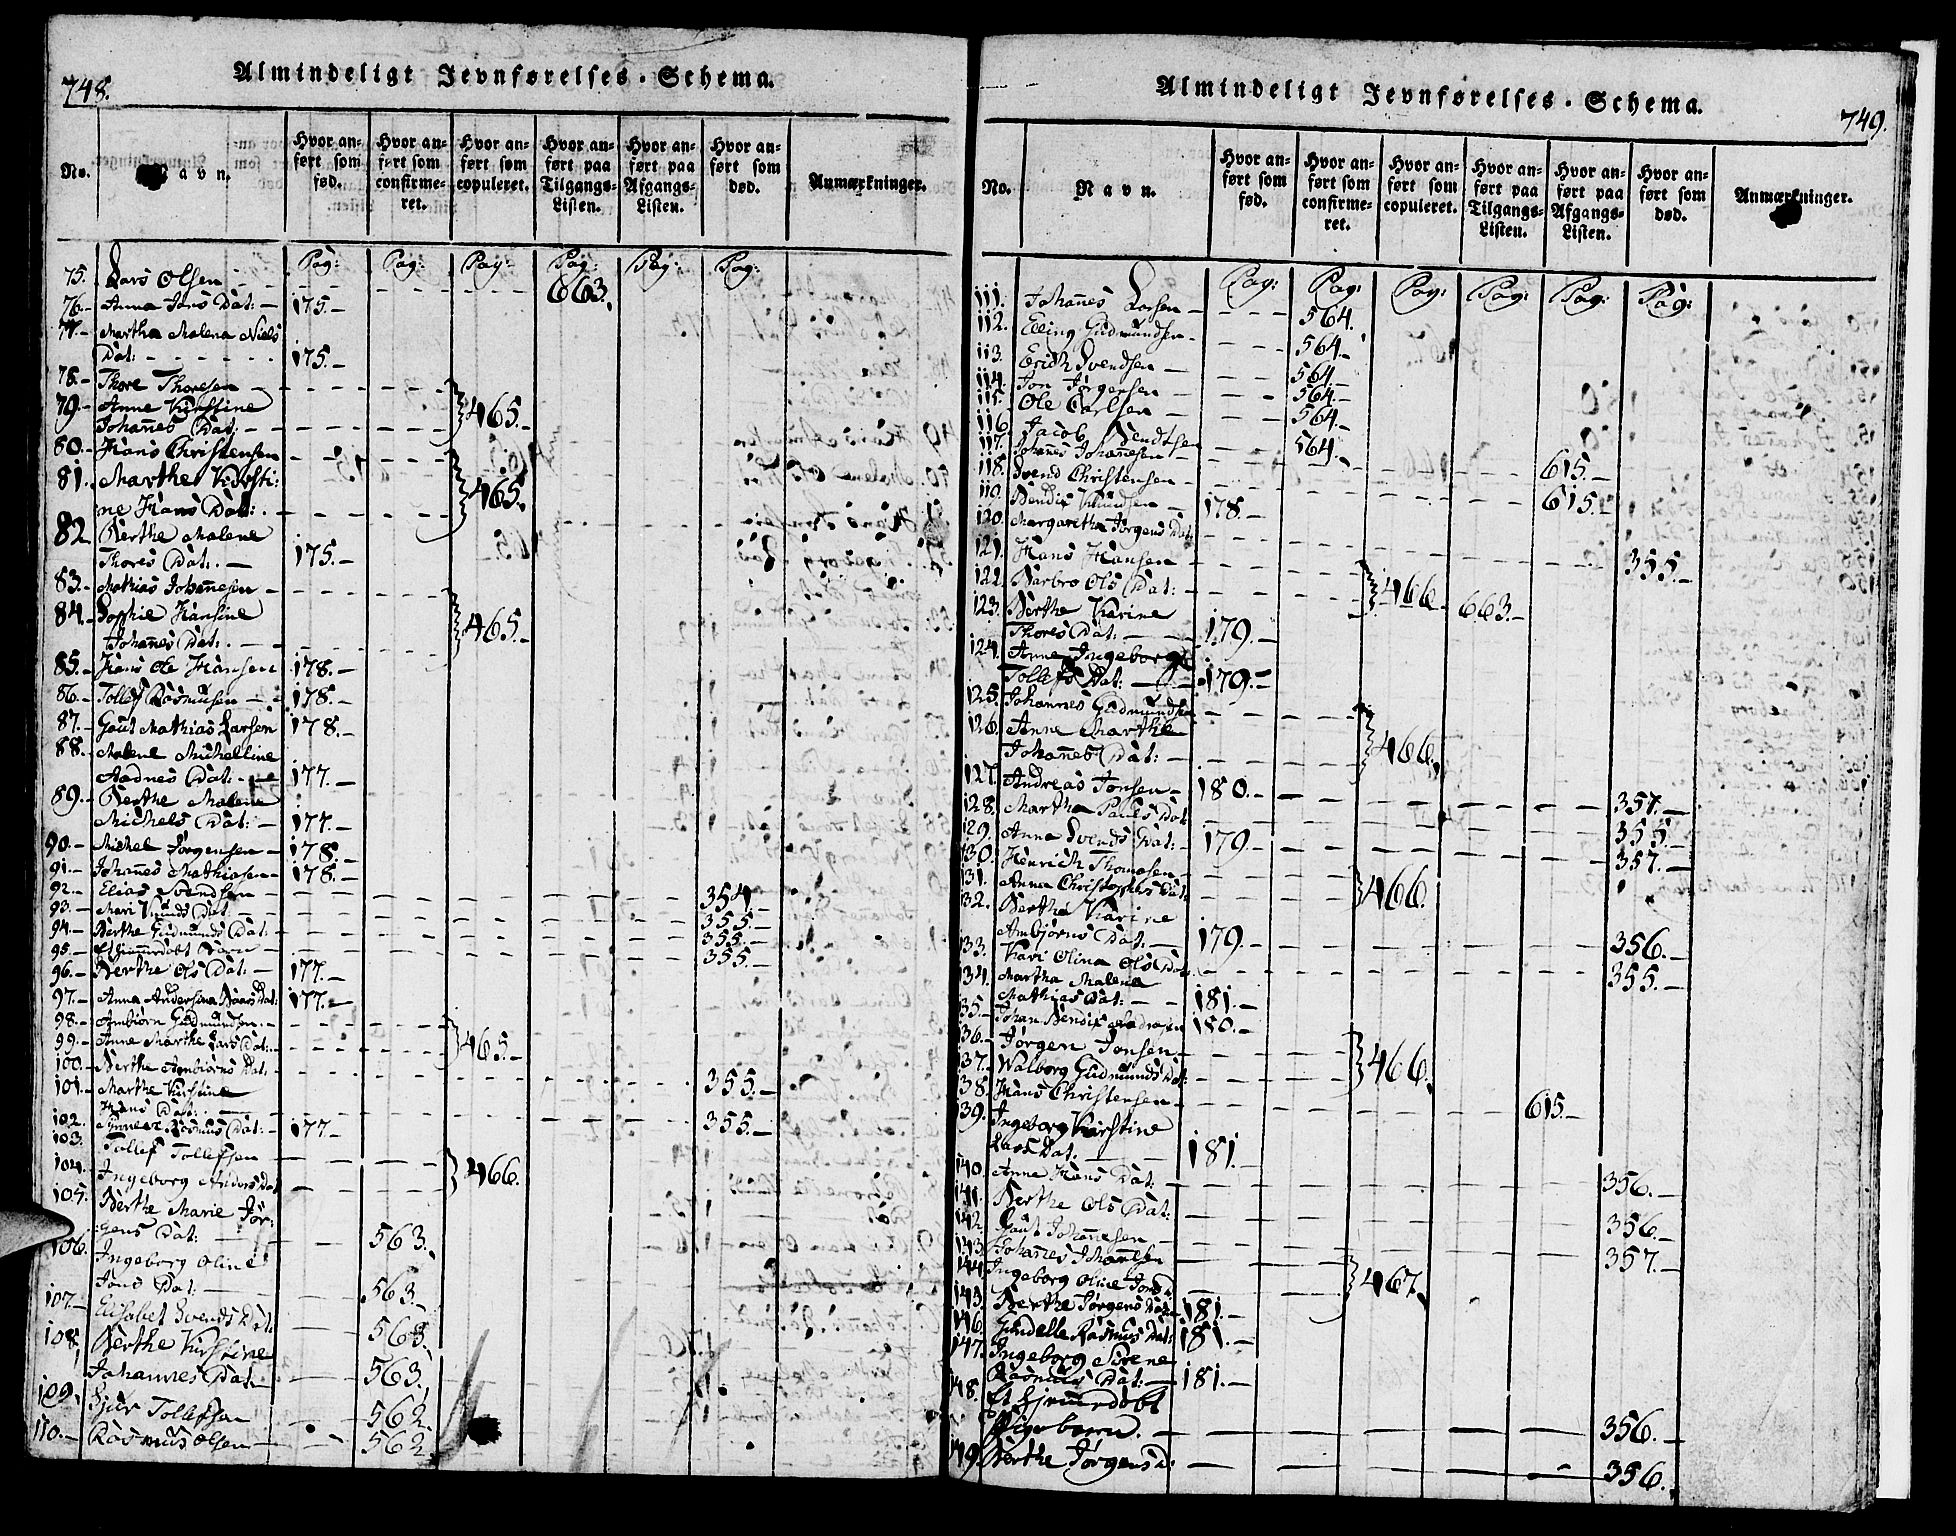 748.
Almindeligt Jevnførelses-Schema.
No. Navn. Hvor anført som fød. Hvor anført som confirmeret. Hvor anført som copuleret. Hvor anført paa Tilgangs-Listen. Hvor anført paa Afgangs-Listen. Hvor anført som død. Anmærkninger.
Pag: Pag: Pag: Pag: Pag: Pag:
75. Lars Olsen 663.
76.- Anna Jons Dat: 175.-
77.- Martha Malena Niels
Dat: 175.-
78.- Thore Thoresen
79.- Anne Kirstine 465.
Johannes Dat:
80.- Hans Christensen
81. Marthe Kirsti: 465.
ne Hans Dat:
82 Berthe Malene
Thores Dat: 175.-
83.- Mathias Johannesen
84.- Sophie Hansine 465.-
Johannes Dat:
85.- Hans Ole Hansen 178.-
86.- Tollef Rasmusen 178.-
87.- Gaut Mathias Larsen 178.-
88.- Malene Michelline
Aadnes Dat: 177.-
89.- Berthe Malene
Michels Dat: 177.-
90.- Michel Jørgensen 178.-
91.- Johannes Mathiasen 178.-
92.- Elias Svendsen 354.-
93.- Mari Knuds Dat 355.-
94.- Berthe Gudmunds Dat: 355.-
95.- Et hjemmedøbt Barn 355.-
96.- Berthe Ols Dat: 177.-
97.- Anna Andersina Baars Dat: 177.-
98.- Ambiørn Gudmundsen
99.- Anne Marthe Lars Dat: 465.-
100.- Berthe Ambiørns Dat: 355.-
101.- Marthe Kirstine
Hans Dat: 355.-
102. Rasmus Dat: 177.-
103. Tollef Tollefsen
104. Ingeborg Anders Dat 466.
105. Berthe Marie Jør:
gens Dat: 563.
106. Ingeborg Oline
Jons Dat: 563.-
107.- Elisabet Svends Dat: 563.
108. Berthe Kirstine
Johannes Dat: 563.
109. Tollefsen 562.
110.- Rasmus Olsen 562.
749.
Almindeligt Jevnførelses-Schema.
No. Navn. Hvor anført som fød. Hvor anført som confirmeret. Hvor anført som copuleret. Hvor anført paa Tilgangs-Listen. Hvor anført paa Afgangs-Listen. Hvor anført som død. Anmærkninger.
Pag: Pag: Pag: Pag: Pag: Pag:
111. Johannes Larsen 564.
112. Elling Gudmundsen 564.-
113. Erich Svendsen 564.-
114. Jon Jørgensen 564.-
115. Ole Carlsen 564.-
116. Jacob Bendtsen 564.-
117. Johannes Johannesen 615.-
118. Svend Christensen 615.-
119. Bendix Knudsen 178.-
120. Margaretha Jørgens Dat: 355.-
121. Hans Hansen
122. Barbro Ols Dat: 466 663.-
123. Berthe Karine
Thores Dat: 179.-
124. Anne Ingeborg
Tollefs Dat: 179.-
125. Johannes Gudmundsen
126. Anne Marthe 466.
Johannes Dat:
127. Andreas Jonsen 180.- 357.-
128. Martha Pauls Dat 355.-
129. Anna Svends Dat: 179.- 357.-
130. Henrich Thomasen
131. Anna Christophers Dat: 466.
132. Berthe Karine
Ambjørns Dat: 179.- 356.-
133. Kari Olina Ols Dat: 355.-
134. Martha Malena
Mathias Dat: 181.-
135. Johan Bendix Andreasen 180.-
136. Jørgen Jonsen
137. Walborg Gudmunds Dat: 466.
138. Hans Christensen 615.-
139. Ingeborg Kirstine
Lars Dat: 181.-
140. Anne Hans Dat: 356.-
141. Berthe Ols Dat: 356.-
142. Gaut Johannesen 357.-
143. Johannes Johannesen
144. Ingeborg Oline Jons D: 467.
145. Berthe Jørgens Dat: 181.-
146. Gundelle Rasmus Dat: 181.-
147. Ingeborg Sirene
Rasmus Dat: 181.-
148. Et hjemmedøbt
Pigebarn. 356.-
149. Berthe Jørgens D: 356.